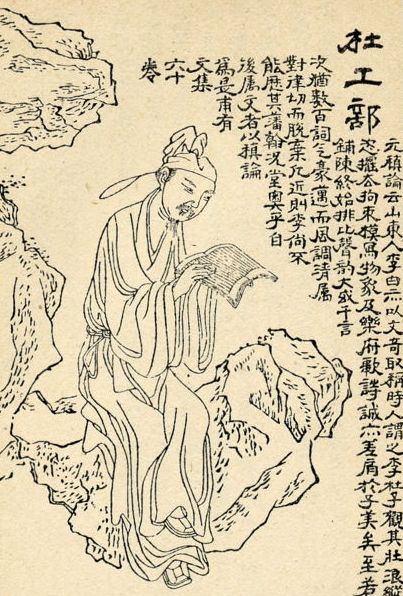 杜工部
元稹論云山東人李白亦以文奇取稱時人謂之李杜予觀其壯浪縱
恣擺去拘束模寫物象及樂府歌詩誠亦差肩於子美矣至若
鋪陳終始排比聲韵大或千言
次猶數百詞气豪邁而風調清厲
對律切而脫棄凡近則李尚不
能歷其藩翰况堂奧乎自
後屬文者以稹論
為是甫有
文集
六十
卷